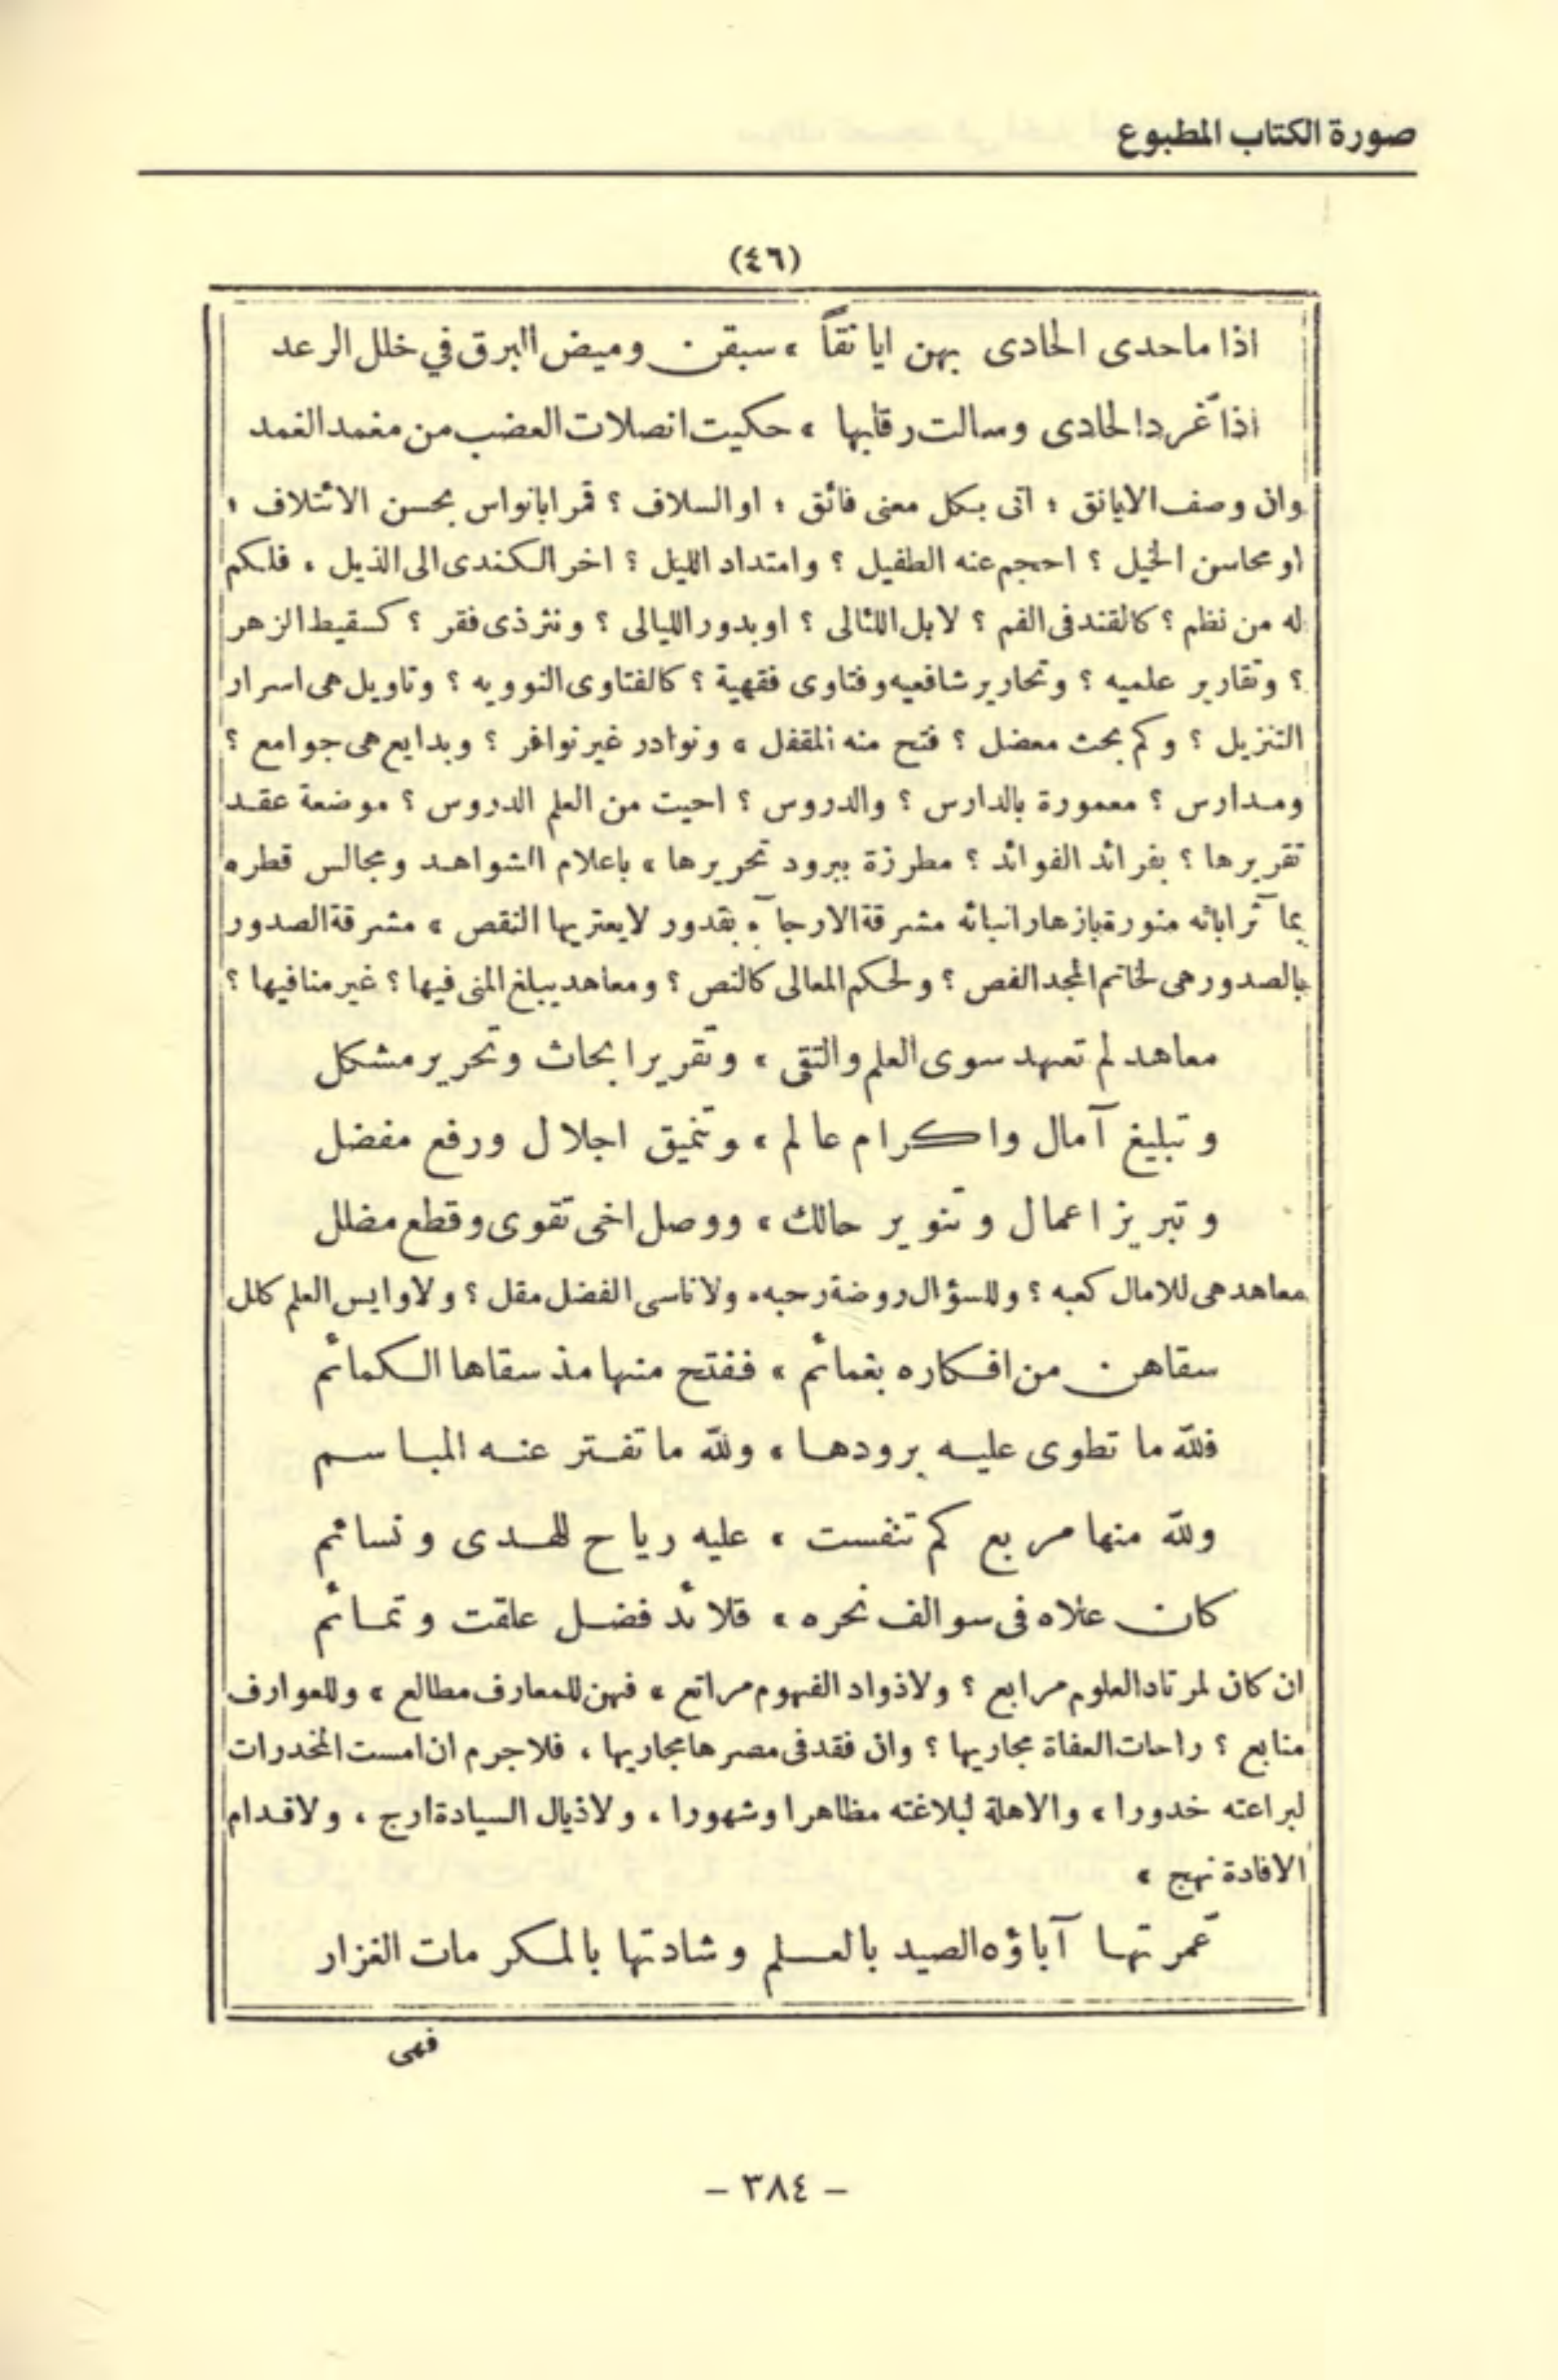 صورة الكتاب المطبوع
(٤٦)
اذا ما حدى الحادى بهن ايانقاً ، سبقن وميض البرق في خلل الرعد
اذا غّرد الحادى وسالت رقابها ، حكيت انصلات العضب من مغمد الغمد
وان وصف الايانق ؛ اتى بكل معنى فائق ؛ او السلاف ؟ قمر ابانواس بحسن الائتلاف ؛
او محاسن الخيل ؟ احجم عنه الطفيل ؟ وامتداد الليل ؟ اخر الكندى الى الذيل ، فلكم
له من نظم ؟ كالقند فى الفم ؟ لا بل اللئالى ؟ او بدور الليالى ؟ ونثر ذى فقر ؟ كسقيط الزهر
؟ وتقارير علميه ؟ وتحارير شافعيه وفتاوى فقهية ؟ كالفتاوى النوويه ؟ وتاويل هى اسرار
التنزيل ؟ وكم بحث معضل ؟ فتح منه المقفل ، ونوادر غير نوافر ؟ وبدايع هى جوامع ؟
ومدارس ؟ معمورة بالدارس ؟ والدروس ؟ احيت من العلم الدروس ؟ موضعة عقد
تقريرها ؟ بفرائد الفوائد ؟ مطرزة ببرود تحريرها ، باعلام الشواهد ومجالس قطره
بمآثر ابائه منورة بازهار انبائه مشرقة الارجآء بقدور لا يعتريها النقص ، مشرقة الصدور
بالصدور هى لخاتم المجد الفص ؟ ولحكم المعالى كالنص ؟ ومعاهد يبلغ المنى فيها ؟ غير منافيها ؟
معاهد لم تعهد سوى العلم والتقى ، وتقرير ابحاث وتحرير مشكل
وتبليغ آمال واكرام عالم ، وتنميق اجلال ورفع مفضل
وتبريز اعمال وتنوير حالك ، ووصل اخى تقوى وقطع مضلل
معاهد هى للامال كعبه ؟ وللسؤال روضة رحبه ، ولا ناسى الفضل مقل ؟ ولاوايس العلم كالل
سقاهن من افكاره بغمائم ، ففتح منها مذ سقاها الكمائم
فلله ما تطوى عليه برودها ، ولله ما تفتر عنه المباسم
ولله منها مربع كم تنفست ، عليه رياح للهدى ونسائم
كان علاه فى سوالف نحره ، قلائد فضل علقت وتمائم
ان كان لمرتاد العلوم مرابع ؟ ولاذواد الفهوم مراتع ، فهن للمعارف مطالع ، وللعوارف
منابع ؟ راحات العفاة مجاريها ؟ وان فقد فى مصرها مجاريها ، فلا جرم ان امست المخدرات
لبراعته خدورا ، والاهلة لبلاغته مظاهرا وشهورا ، ولاذيال السيادة ارج ، ولاقدام
الافادة نهج ،
عّمرتها آباؤه الصيد بالعلم وشادتها بالمكرمات الغزار
فهى
- ٣٨٤ -